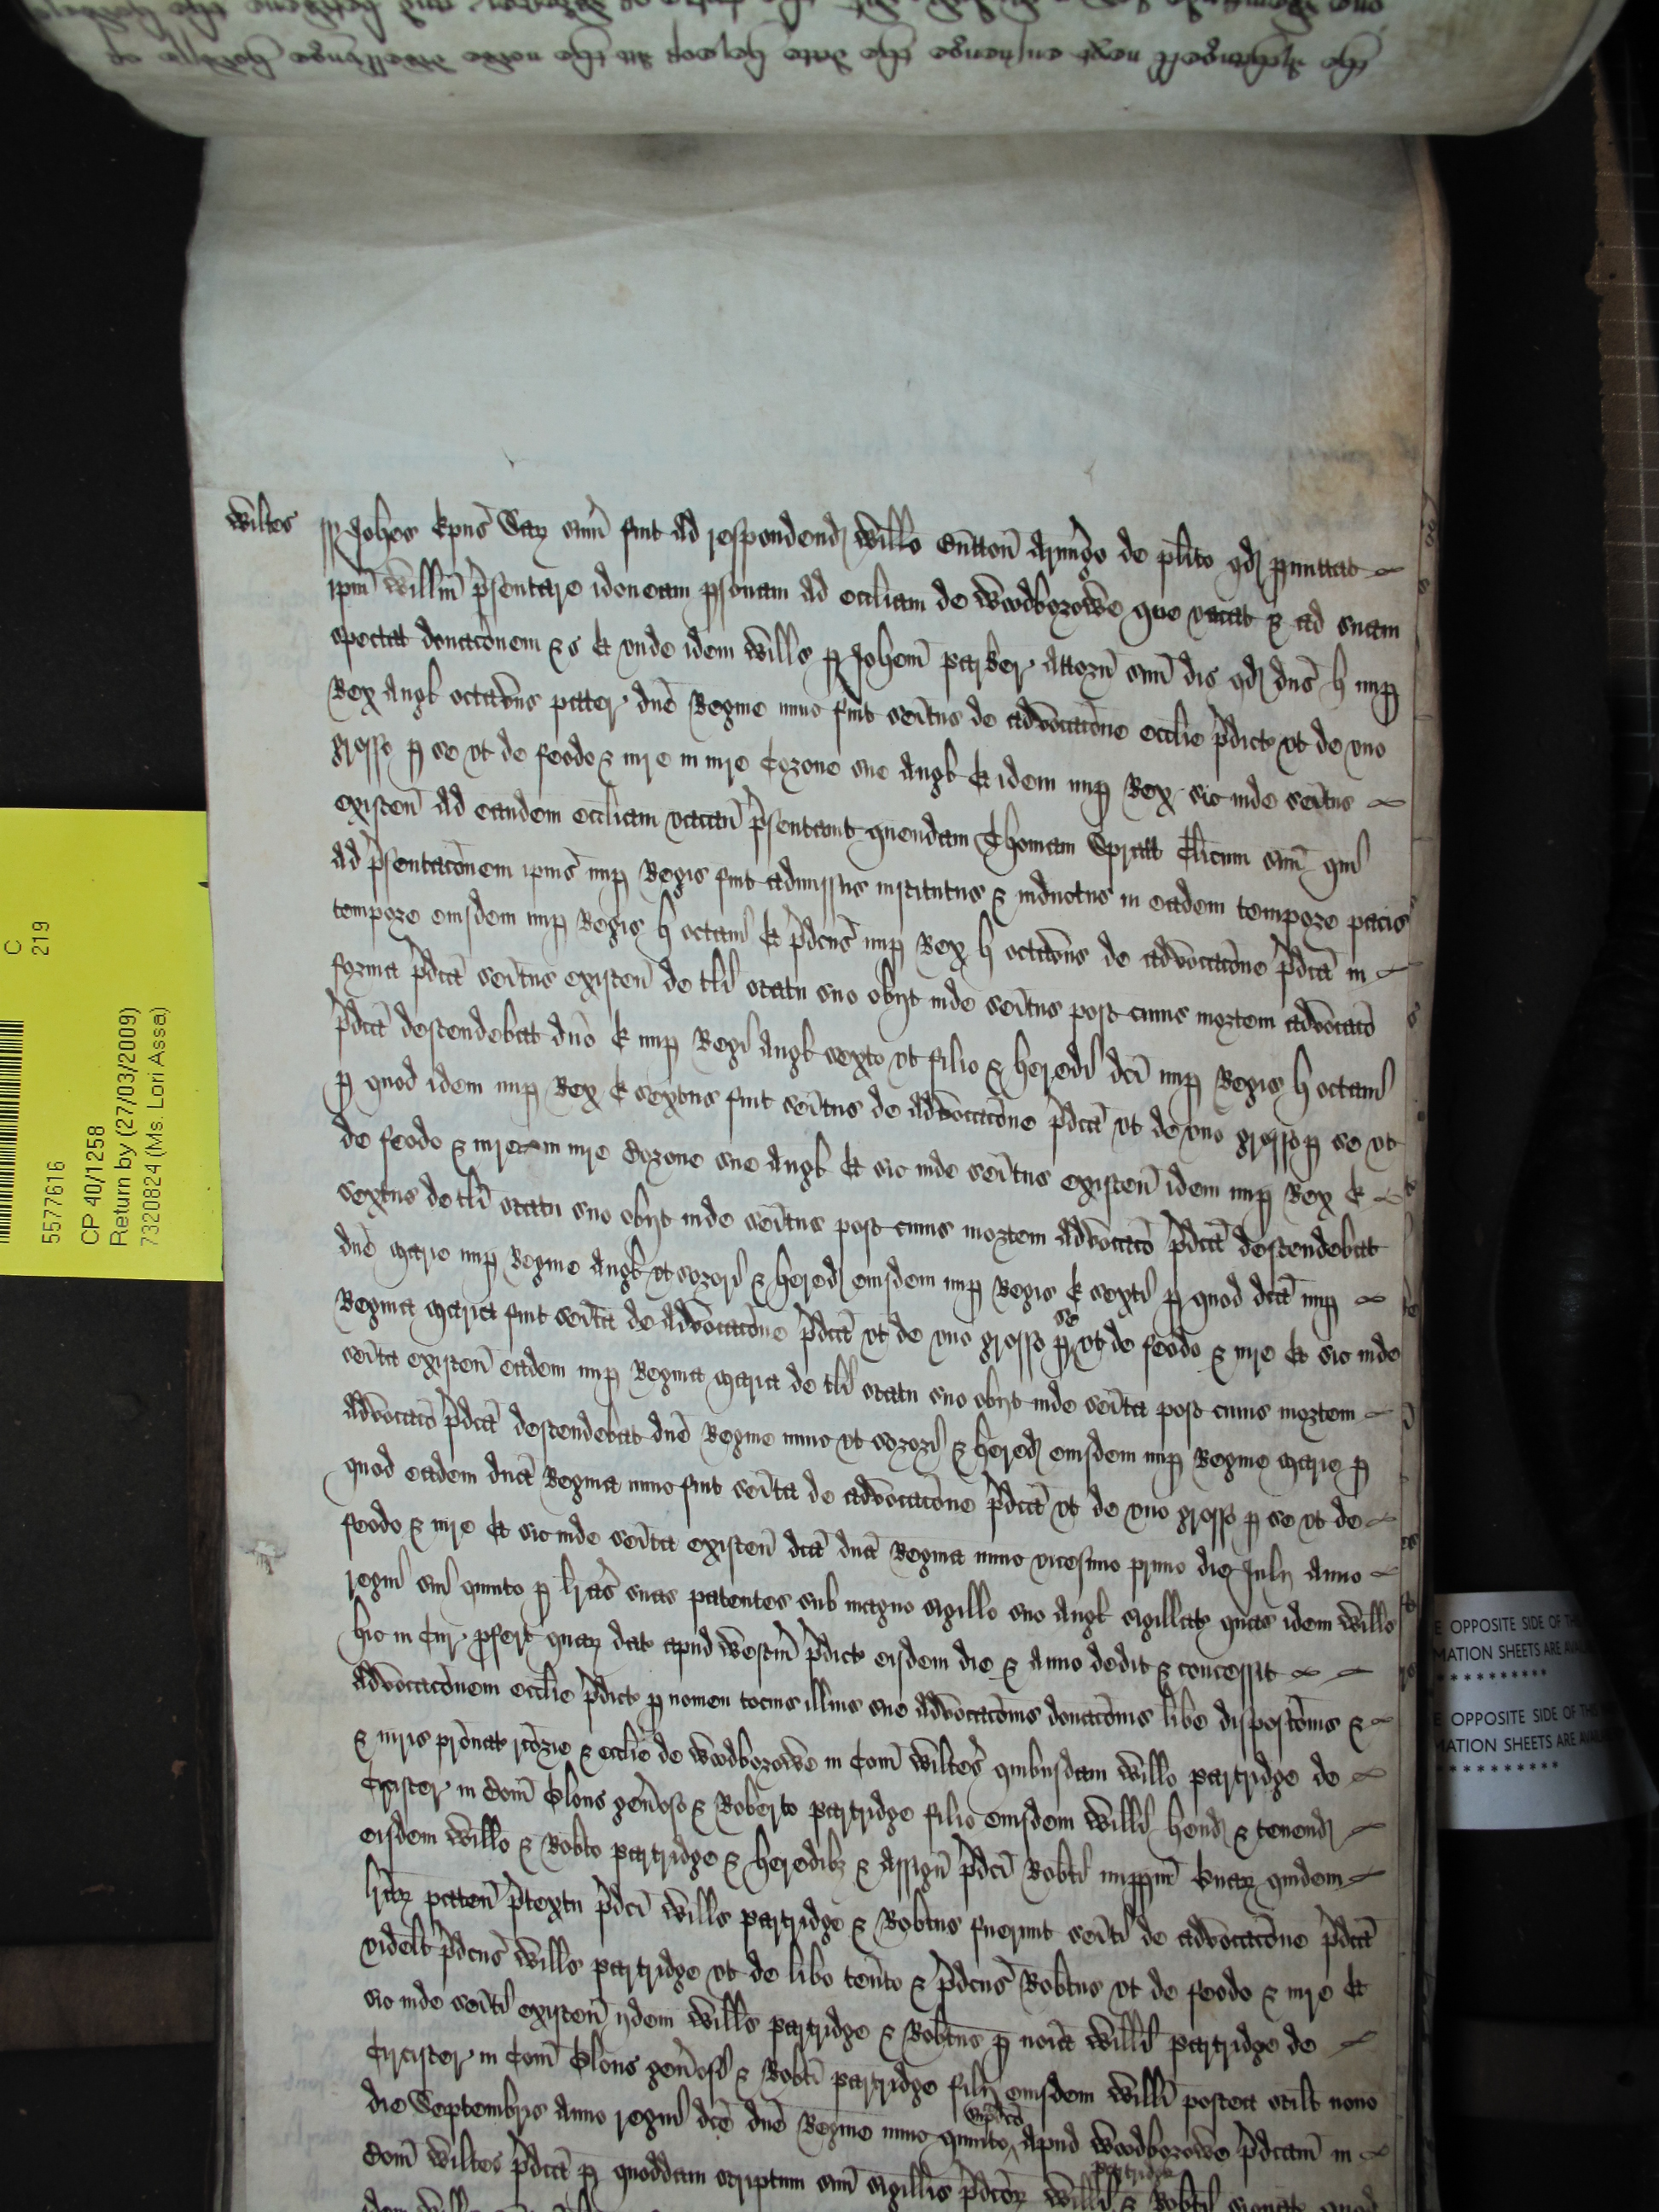 Wiltes Johes Epus Sar̄ sum̄ fuit ad respondend Willo Button Armigo de plito qd pmittat
ipm Willm p̄sentare idoneam psonam ad eccliam de Woodborowe que vacat & ad suam
spectat donacōnem &c Et unde idem Wills p Johem Parker Attorn̄ suu dic qd dns H nup
Rex Angl octavus pater dnē Regine nunc fuit seitus de advocacōne ecclie p̄dict ut de uno
grosso p se ut de feodo & iure in iure Corone sue Angl Et idem nup Rex sic inde seitus
existen̄ ad eandem eccliam vacan̄ p̄sentavit quendam Thomam Spratt Clicum suū qui
ad p̄sentacōnem ipius nup Regis fuit admissus institutus & inductus in eadem tempore pacis
tempore eiusdem nup Regis H octavi Et p̄dcus nup Rex H octavus de advocacōne p̄dca in
forma p̄dca seitus existen̄ de tli statu suo obijt inde seitus post cuius mortem advocaco
p̄dca descendebat dno E nup Regi Angl sexto ut filio & heredi dci nup Regis H octavi
p quod idem nup Rex E sextus fuit seitus de Advocacōne p̄dca ut de uno grosso p se ut
de feodo & iure in iure Corone sue Angl Et sic inde seitus existen̄ idem nup Rex E
sextus de tli statu suo obijt inde seitus post cuius mortem Advocaco p̄dca descendebat
dne Marie nup Regine Angl ut sorori & hered eiusdem nup Regis E sexti p quod dca nup
Regina Maria fuit seita de Advocacōne p̄dca ut de uno grosso p se ut de feodo & iure Et sic inde
seita existen̄ eadem nup Regina Maria de tli statu suo obijt inde seita post cuius mortem
Advocaco p̄dca descendebat dne Regine nunc ut sorori & hered eiusdem nup Regine Marie p
quod eadem dna Regina nunc fuit seita de advocacōne p̄dca ut de uno grosso p se ut de
feodo & iure Et sic inde seita existen̄ dca dna Regina nunc vicesimo primo die Julij Anno
regni sui quinto p lras suas patentes sub magno sigillo suo Angl sigillat quas idem Wills
hic in Cur p̄fert quar dat apud Westm̄ p̄dict eisdem die & Anno dedit & concessit
Advocacōnem ecclie p̄dict p nomen tocius illius sue Advocacōnis donacōnis libe disposicōnis &
& iuris pronat rcorie & ecclie de Woodborowe in Com̄ Wiltes quibusdam Willo Partridge de
Cicister in Com̄ Glouc genoso & Roberto Partridge filio eiusdem Willi hend & tenend
eisdem Willo & Robto Partridge & heredibz & Assign̄ p̄dci Robti imppm̄ virtute quidem
lrar paten̄ p̄textu p̄dci Wills Partridge & Robtus fuerunt seiti de advocacōne p̄dca
videlt p̄dcus Wills Partridge ut de libo tento & p̄dcus Robtus ut de feodo & iure Et
sic inde seiti existen̄ ijdem Wills Partridge & Robtus p noia Willi Partridge de
Cicister in Com̄ Glouc genosi & Robti Partridge filij eiusdem Willi postea scilt nono
die Septembris Anno regni dce dne Regine nunc quinto supdco Apud Woodborowe p̄dcam in
Com̄ Wiltes p̄dca p quoddam scriptum suū sigillis p̄dcor Willi Partridge & Robti signat quod
5577616
C
219
CP 40/1258
Return by (27/03/2009)
7320824 (Ms. Lori Assa)
E OPPOSITE SIDE OF TH
MATION SHEETS ARE AVAIL
**********
E OPPOSITE SIDE OF THIS
MATION SHEETS ARE AVAILA
**********